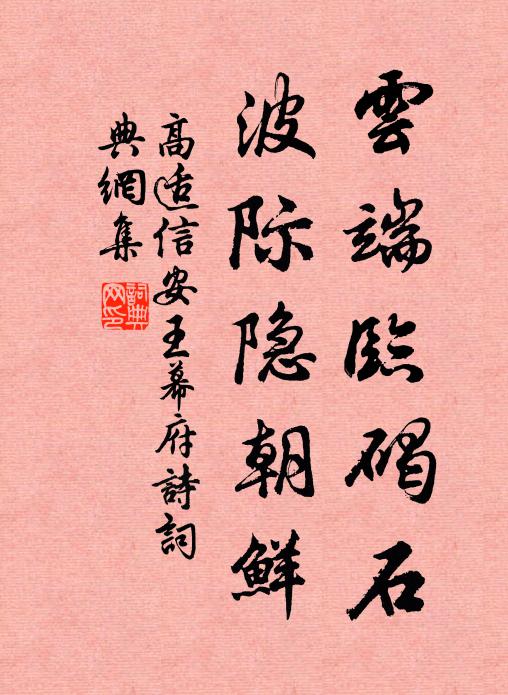 雲端臨碣石
波际隐朝鮮
高适信安王幕府詩詞
典網集
詞典
网印